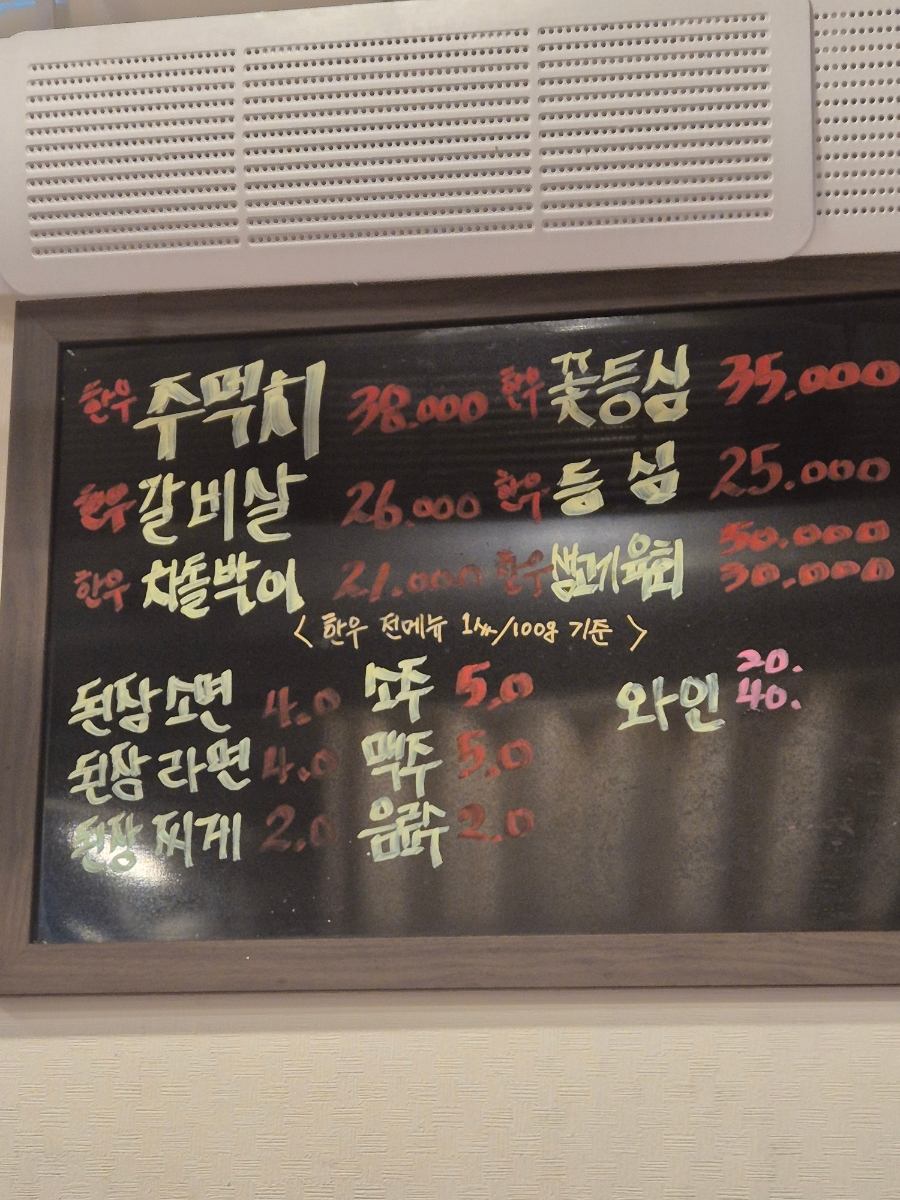 한우 주먹치 38.000 한우 꽃등심 35,000
한우 갈비살 26.000 한우 등심 25.000
한우 차돌박이 21.000 한우 생고기육회 50.000 30.000
< 한우 전메뉴 1人分/100g 기준 >
된장소면 4.0 소주 5.0 와인 20. 40.
된장라면 4.0 맥주 5.0
된장찌게 2.0 음료수 2.0